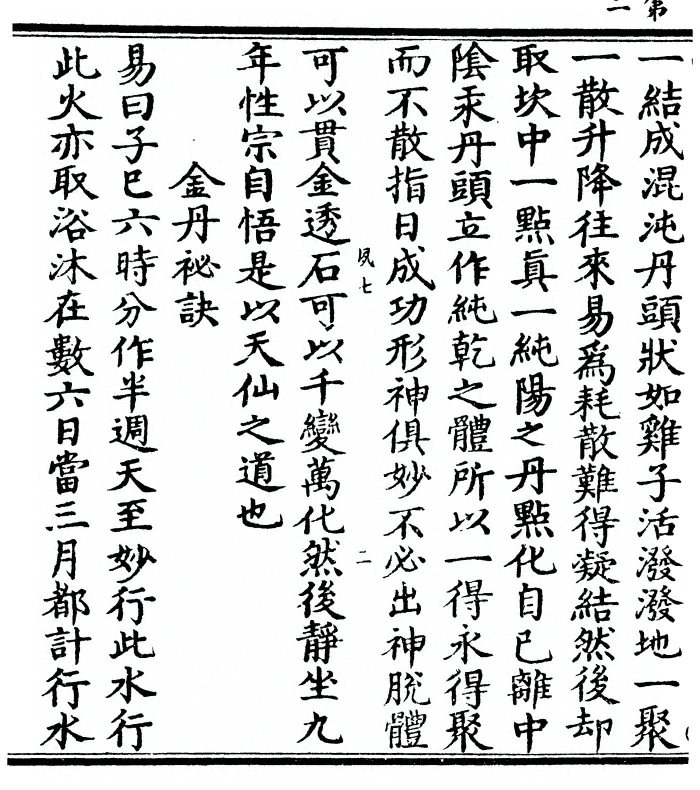 第
二
一結成混沌丹頭狀如雞子活潑潑地一聚
一散升降往來易爲耗散難得凝結然後却
取坎中一點眞一純陽之丹點化自已離中
陰汞丹頭立作純乾之體所以一得永得聚
而不散指日成功形神俱妙不必出神脫體
夙七
二
可以貫金透石可以千變萬化然後靜坐九
年性宗自悟是以天仙之道也
金丹祕訣
易曰子巳六時分作半週天至妙行此水行
此火亦取浴沐在數六日當三月都計行水